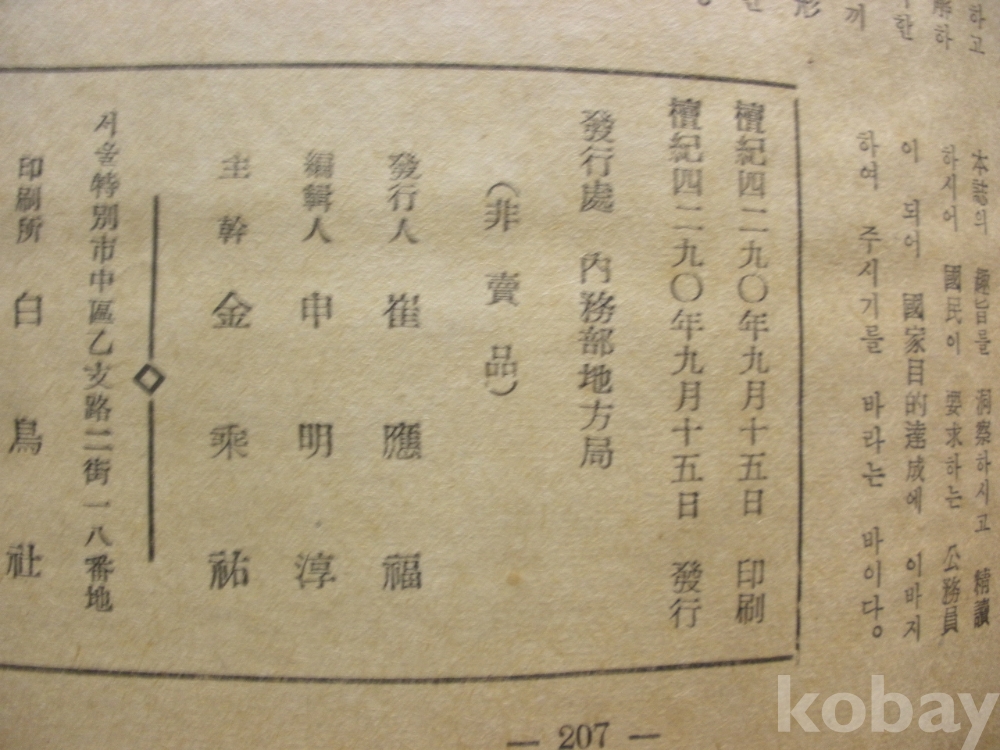 하고
解하
한
形
끼
한
本誌의 趣旨를 洞察하시고 精讀
하시어 國民이 要求하는 公務員
이 되어 國家目的達成에 이바지
하여 주시기를 바라는 바이다。
檀紀四二九〇年九月十五日 印刷
檀紀四二九〇年九月十五日 發行
發行處 內務部地方局
(非賣品)
發行人 崔應福
編輯人 申明淳
主幹 金乘祐
서울特別市中區乙支路二街一八番地
印刷所 白鳥社
— 207 —
kobay